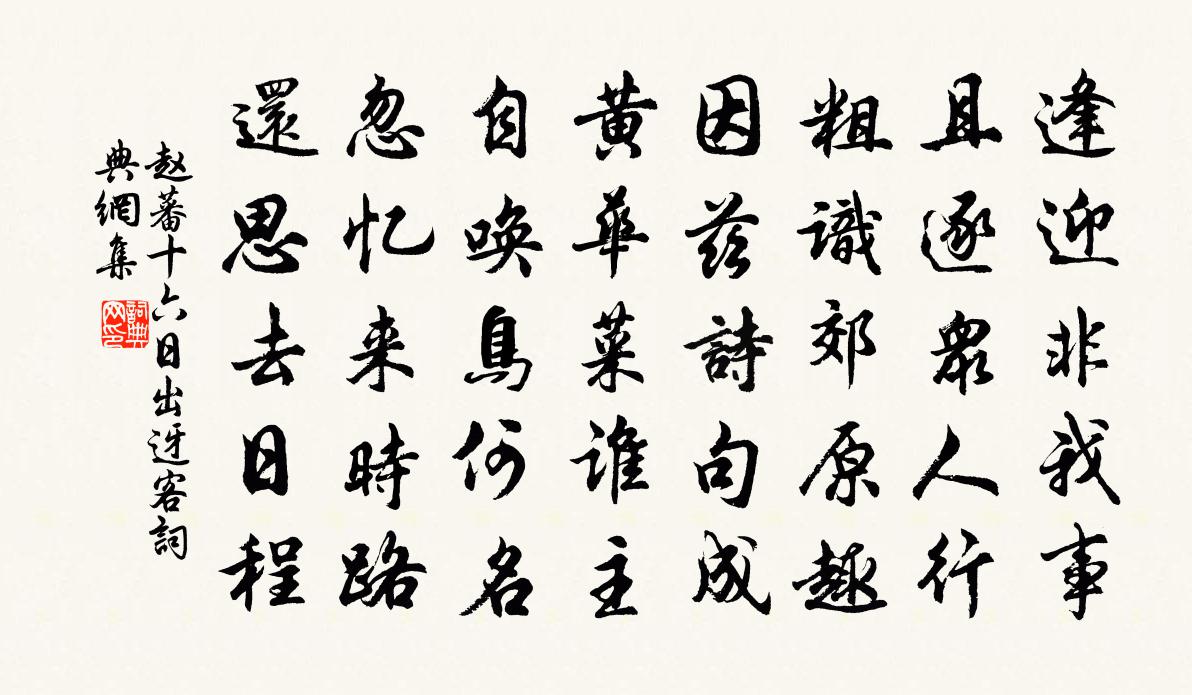 逢迎非我事
且逐眾人行
粗識郊原趣
因茲詩句成
黃華菜誰主
自喚鳥何名
忽忆来時路
還思去日程
赵蕃十六日出迓客詞
典網集
詞典网印